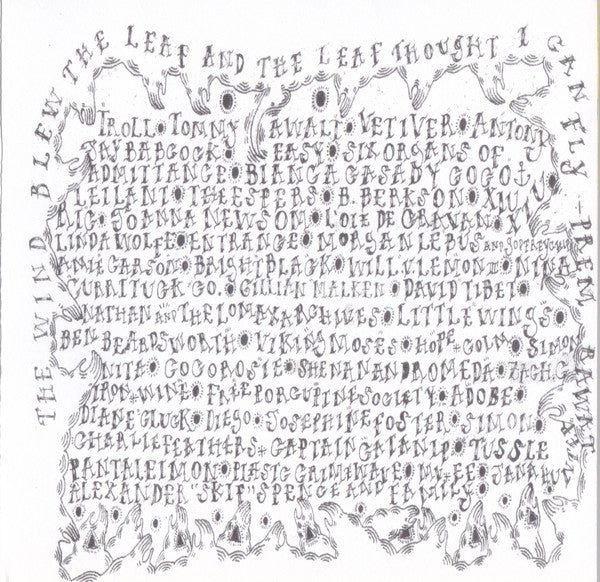 THE WIND BLEW THE LEAF AND THE LEAF THOUGHT I CAN FLY — PREM RAWAT
TROLL • TOMMY AWALT • VETIVER • ANTONY
JAY BABCOCK • EASY • SIX ORGANS OF
ADMITTANCE • BIANCA CASADY GOGO
LEILANI • THEESPERS • B. BERKSON • XIU XIU
RIC • JOANNA NEWSOM • LOIE DE GRAVAN •
LINDA WOLFE • ENTRANCE • MORGAN LEPUS AND
ANNIE CARSON • BRIGHTBLACK • WILL.V.LEMON III • NINA
CURRITUCK CO. • GILLIAN MALKEN • DAVID TIBET •
NATHAN AND THE LOMAX ARCHIVES • LITTLE WINGS •
BEN BEARDSWORTH • VIKING MOSES • HOPE + COLM • SIMON
NITA • COCOROSIE • SHENANANDROMEDA • ZACH.C.
IRON + WINE • FREE PORCUPINE SOCIETY • ADOBE •
DIANE CLUCK • DIEGO • JOSEPHINE FOSTER • SIMON •
CHARLIE FEATHERS + CAPTAIN CATANIP • TUSSLE
PANTALEIMON • PLASTC CRIMEWAVE • MY + EE • JANA HUNTER
ALEXANDER "SKIP" SPENCE AND FAMILY •